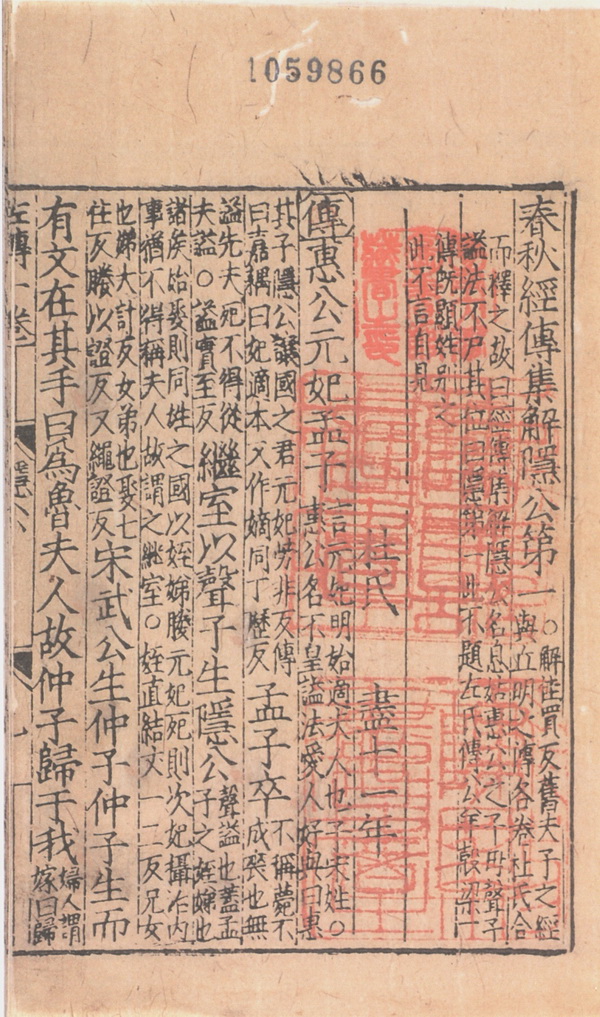 1059866
春秋經傳集解隱公第一
○解佳買反舊夫子之經
與丘明之傳各卷杜氏合
而釋之故曰經傳集解隱公名息姑惠公之子母聲子
謚法不尸其位曰隱第一此不題左氏傳公羊穀梁二
傳既顯姓別之
此不言自見
杜氏 盡十一年
傳惠公元妃孟子
言元妃明始適夫人也子宋姓○
惠公名不皇謚法愛人好與曰惠
其子隱公讓國之君元妃芳非反傳
曰嘉耦曰妃適本又作嫡同丁歷反
孟子卒
不稱薨不
成喪也無
謚先夫死不得從
夫謚○謚實至反
繼室以聲子生隱公
聲謚也蓋孟
子之姪娣也
諸侯始娶則同姓之國以姪娣媵元妃死則次妃攝治内
事猶不得稱夫人故謂之繼室○姪直結文一二反兄女
也娣大計反女弟也娶七
住反媵以證反又繩證反
宋武公生仲子仲子生而
有文在其手曰爲魯夫人故仲子歸于我
婦人謂
嫁曰歸
左傳一卷